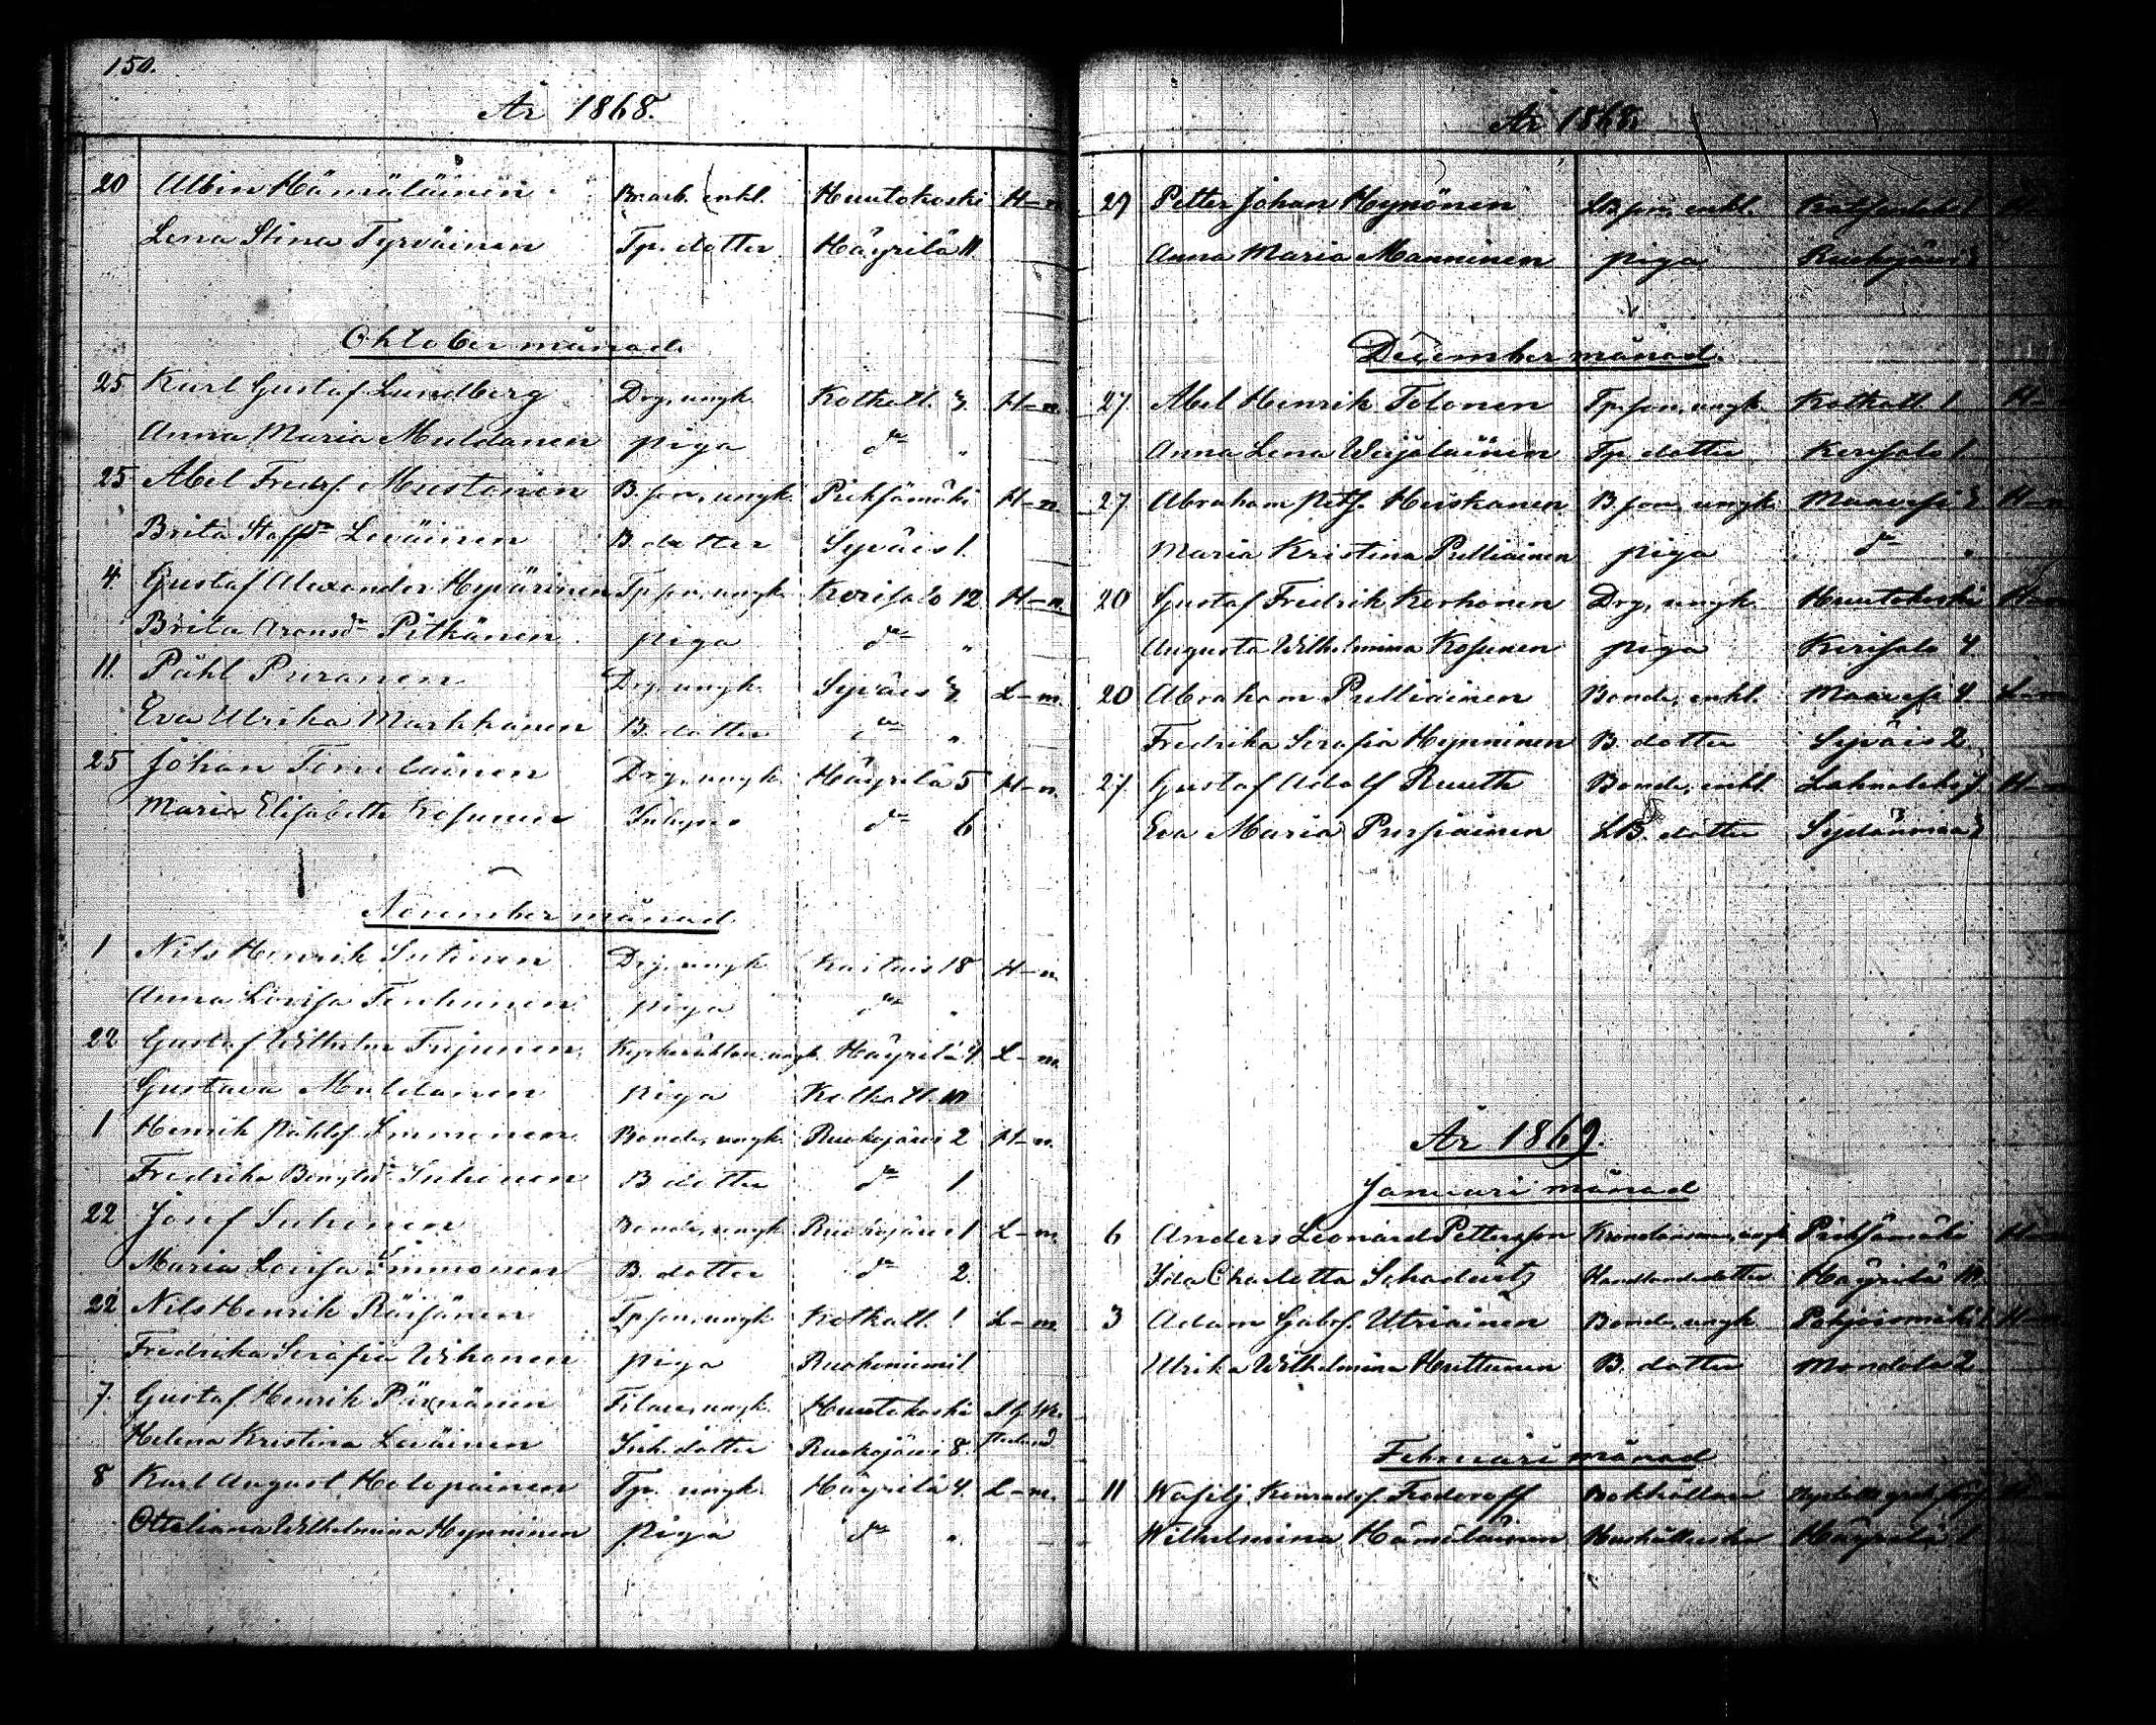 150.
År 1868.
20 Albin Hämäläinen Br.arb. enkl. Huutokoski H-n
Lena Stina Tyrväinen Tp. dotter Häyrilä 11
Oktober månad.
25 Karl Gustaf Lundberg Drg, ungk. Kotkatl. 3. H-n
Anna Maria Muldanen piga d:o "
25 Abel Fredrs. Mustonen B. son, ungk. Pieksämäki H-n
Brita Staffsd:r Leväinen B. dotter Syväis 1.
4 Gustaf Alexander Hyvärinen Tp.son, ungk. Kerisalo 12 H-n
Brita Aronsd:r Pitkänen piga d:o "
11. Påhl Puranen Drg, ungk. Syväis 3. L-m.
Eva Ulrika Markkanen B. dotter d:o "
25 Johan Temelainen Drg, ungk. Häyrilä 5 H-n.
Maria Elisabeth Kosunen d:o 6
November månad.
1 Nils Henrik Sutinen Drg, ungk. 18 H-n.
Anna Lovisa Tenhunen piga d:o "
22 Gustaf Wilhelm ungk. Häyrilä 4 L-m.
Gustava Muldanen piga Kotkatl. 10
1 Henrik Påhlsf. Immonen Bonde, ungk. Ruokojärvi 2 H-n.
Fredrika Bengtsd:r Suhonen B dotter d:o 1
22 Josef Suhonen Bonde, ungk. Ruokojärvi 1 L-m
Maria Lovisa Immonen B. dotter d:o 2.
22 Nils Henrik Räisänen Tp.son, ungk. Kotkatl. 1 L-m
Fredrika Serafia Wihonen piga Ruokoniemi 1
7. Gustaf Henrik Pärnänen Filare, ungk. Huutokoski
Helena Kristina Leväinen Inh. dotter Ruokojärvi 8.
8 Karl August Holopainen Tp. ungk. Häyrilä 4. L-m.
Ottiliana Wilhelmina Hynninen piga d:o "
År 1868.
29 Petter Johan Hynönen LB. son, enkl.
Anna Maria Manninen piga Ruokojärvi 3
December månad.
27 Abel Henrik Tolonen Tp.son, ungk. Kotkatl. 1 H-n
Anna Lena Weijalainen Tp. dotter Kerisalo 1.
27 Abraham Petf. Heiskanen B. son, ungk. Maavesi 3 H-n
Maria Kristina Pulliainen piga d:o "
20 Gustaf Fredrik Korhonen Drg, ungk. Huutokoski H-n
Augusta Wilhelmina Kosunen piga Kerisalo 4
20 Abraham Pulliainen Bonde, enkl. Maavesi 4. L-m
Fredrika Serafia Hynninen B. dotter Syväis 2
27 Gustaf Adolf Ruuth Bonde, enkl. H-n
Eva Maria Pursiainen LB. dotter Sydänmaa 3
År 1869.
Januari månad
6 Anders Leonard Pettersson Pieksämäki H-n
Ida Charlotta Schadewitz Handlandsdotter Häyrilä 10.
3 Adam Gabrs. Utriainen Bonde, ungk. H-n
Ulrika Wilhelmina Huttunen B. dotter Montola 2
Februari månad
11 Wasilj Konradsf. Fedoroff Bokhållare
Wilhelmina Hämäläinen Hushållerska Häyrilä 1